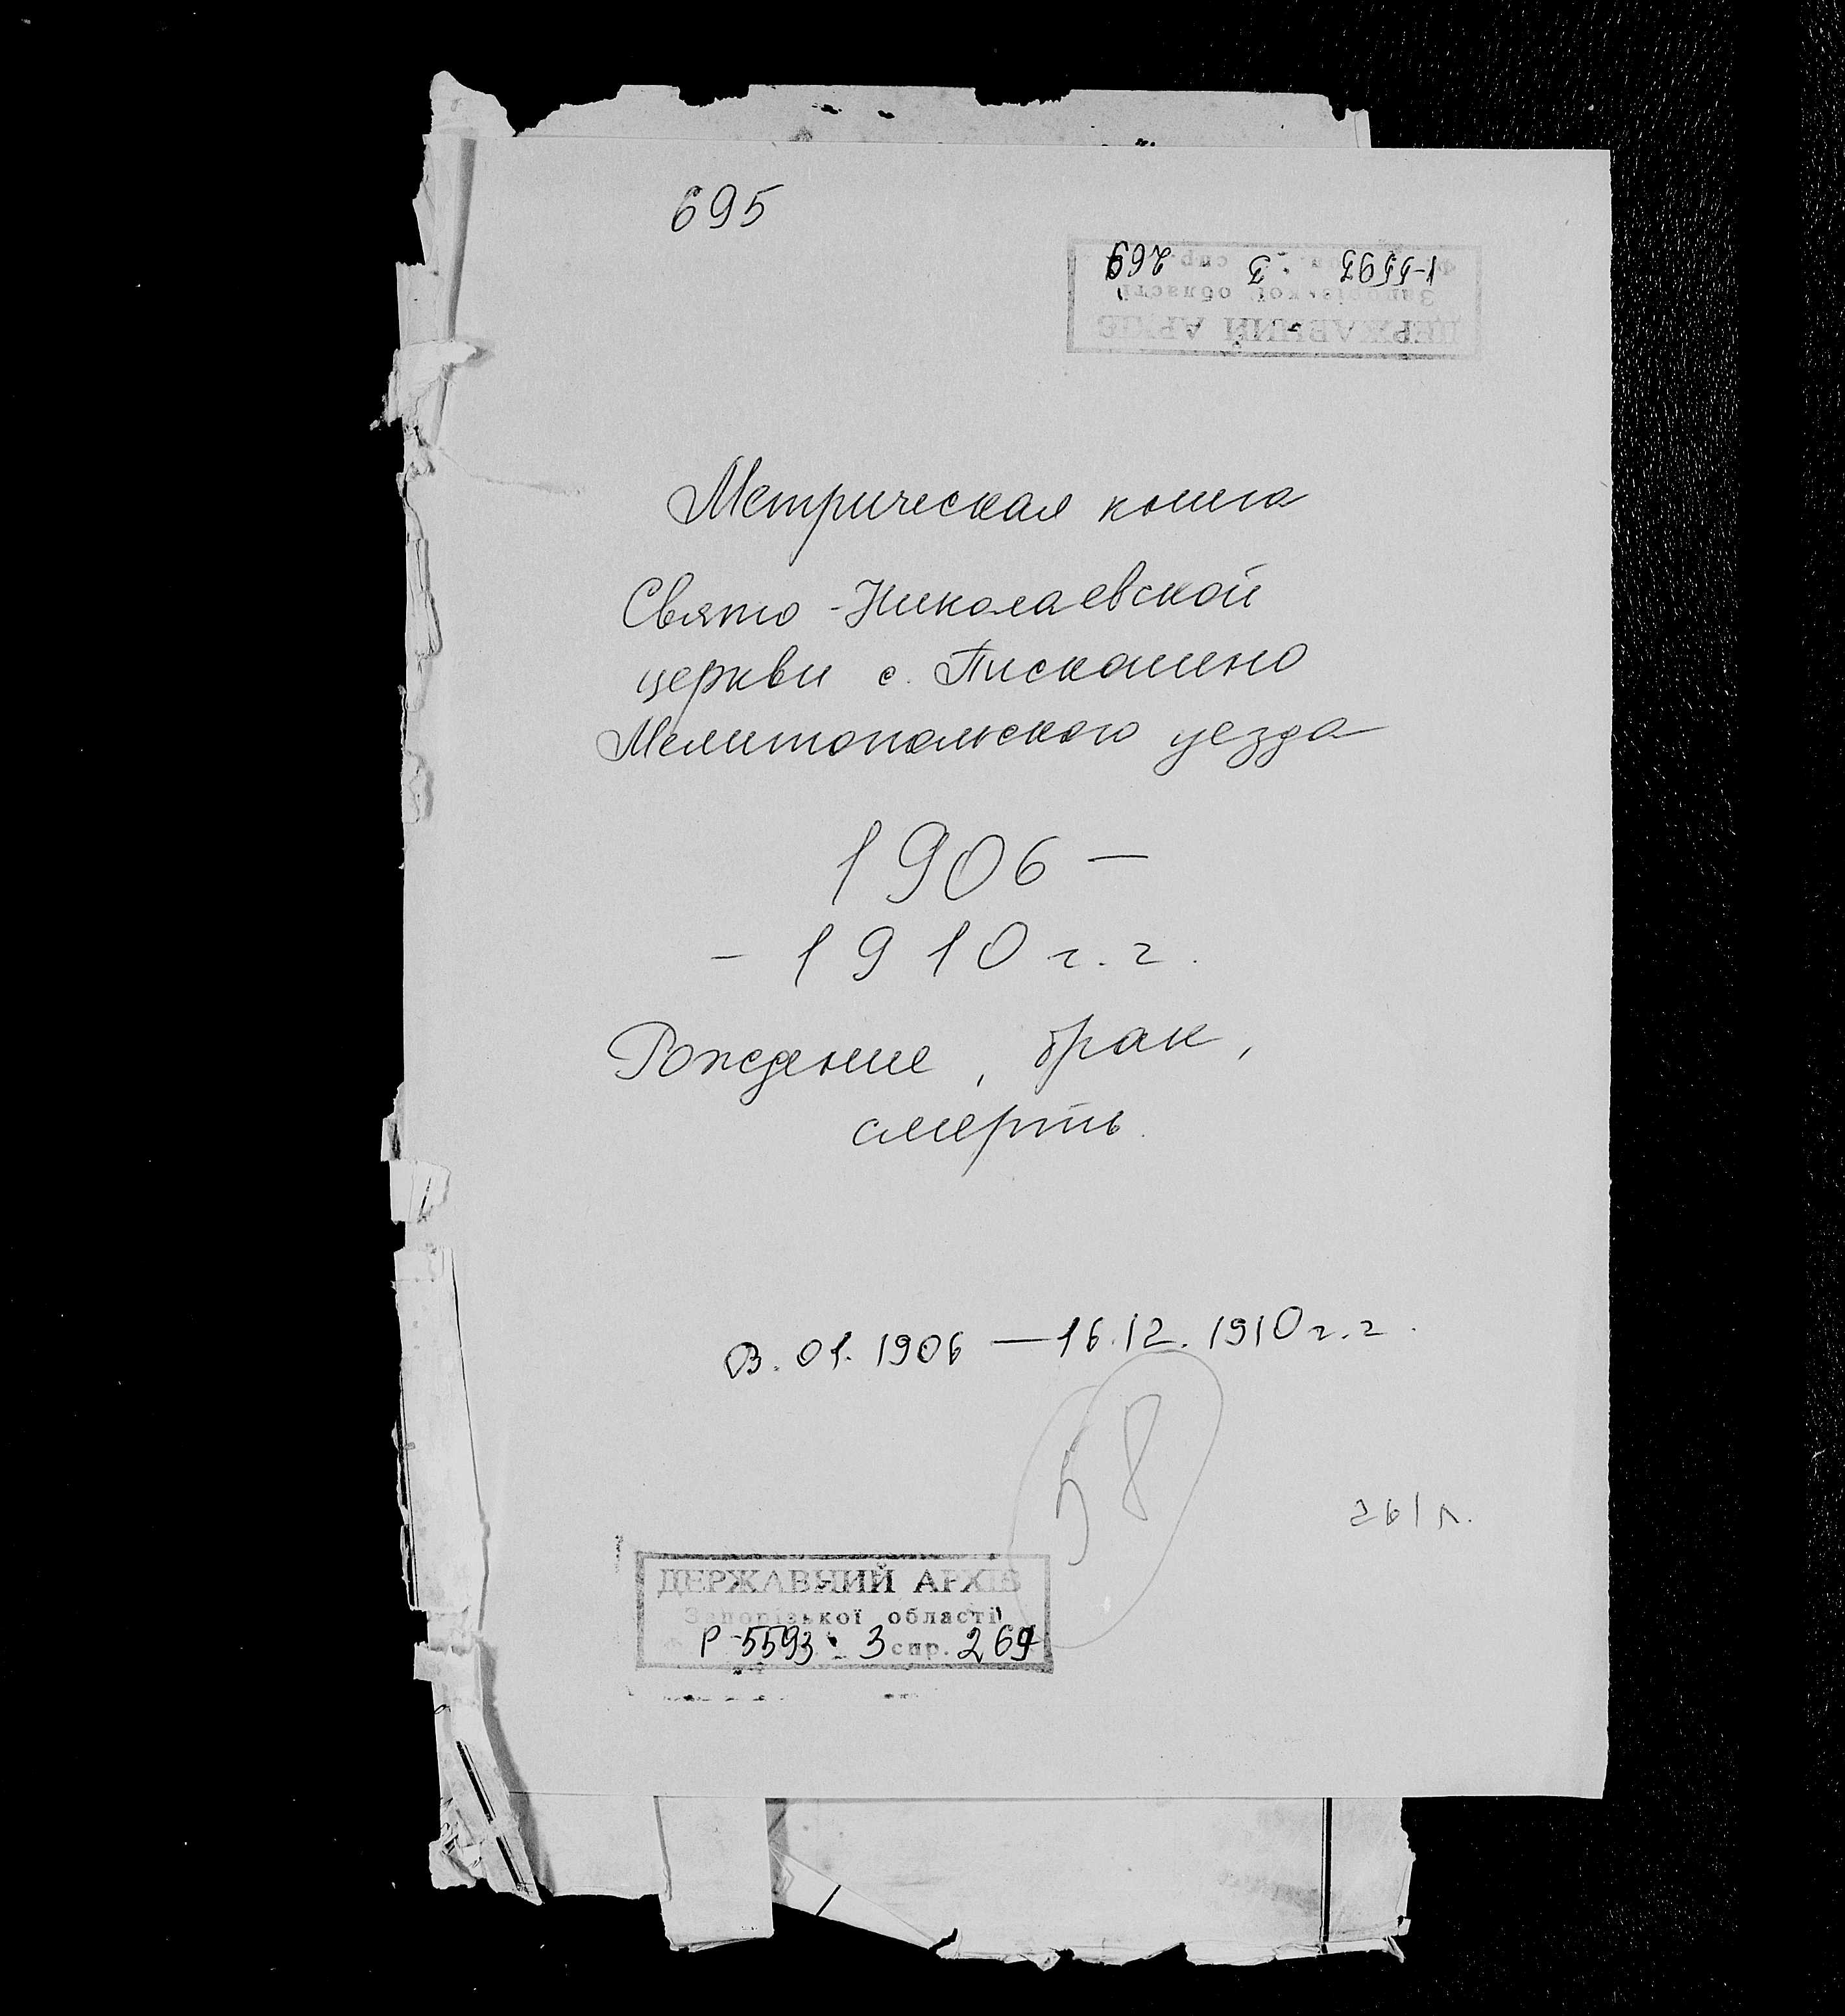 695
Р-5593 3 269
Запорізької області
ДЕРЖАВНИЙ АРХІВ
Метрическая книга
Свято-Николаевской
церкви с. Пискошино
Мелитопольского уезда
1906 –
– 1910 г.г.
Рождение, брак,
смерть.
03.01.1906 — 16.12.1910 г.г.
58
261 л.
ДЕРЖАВНИЙ АРХІВ
Запорізької області
Р-5593 3 спр. 269